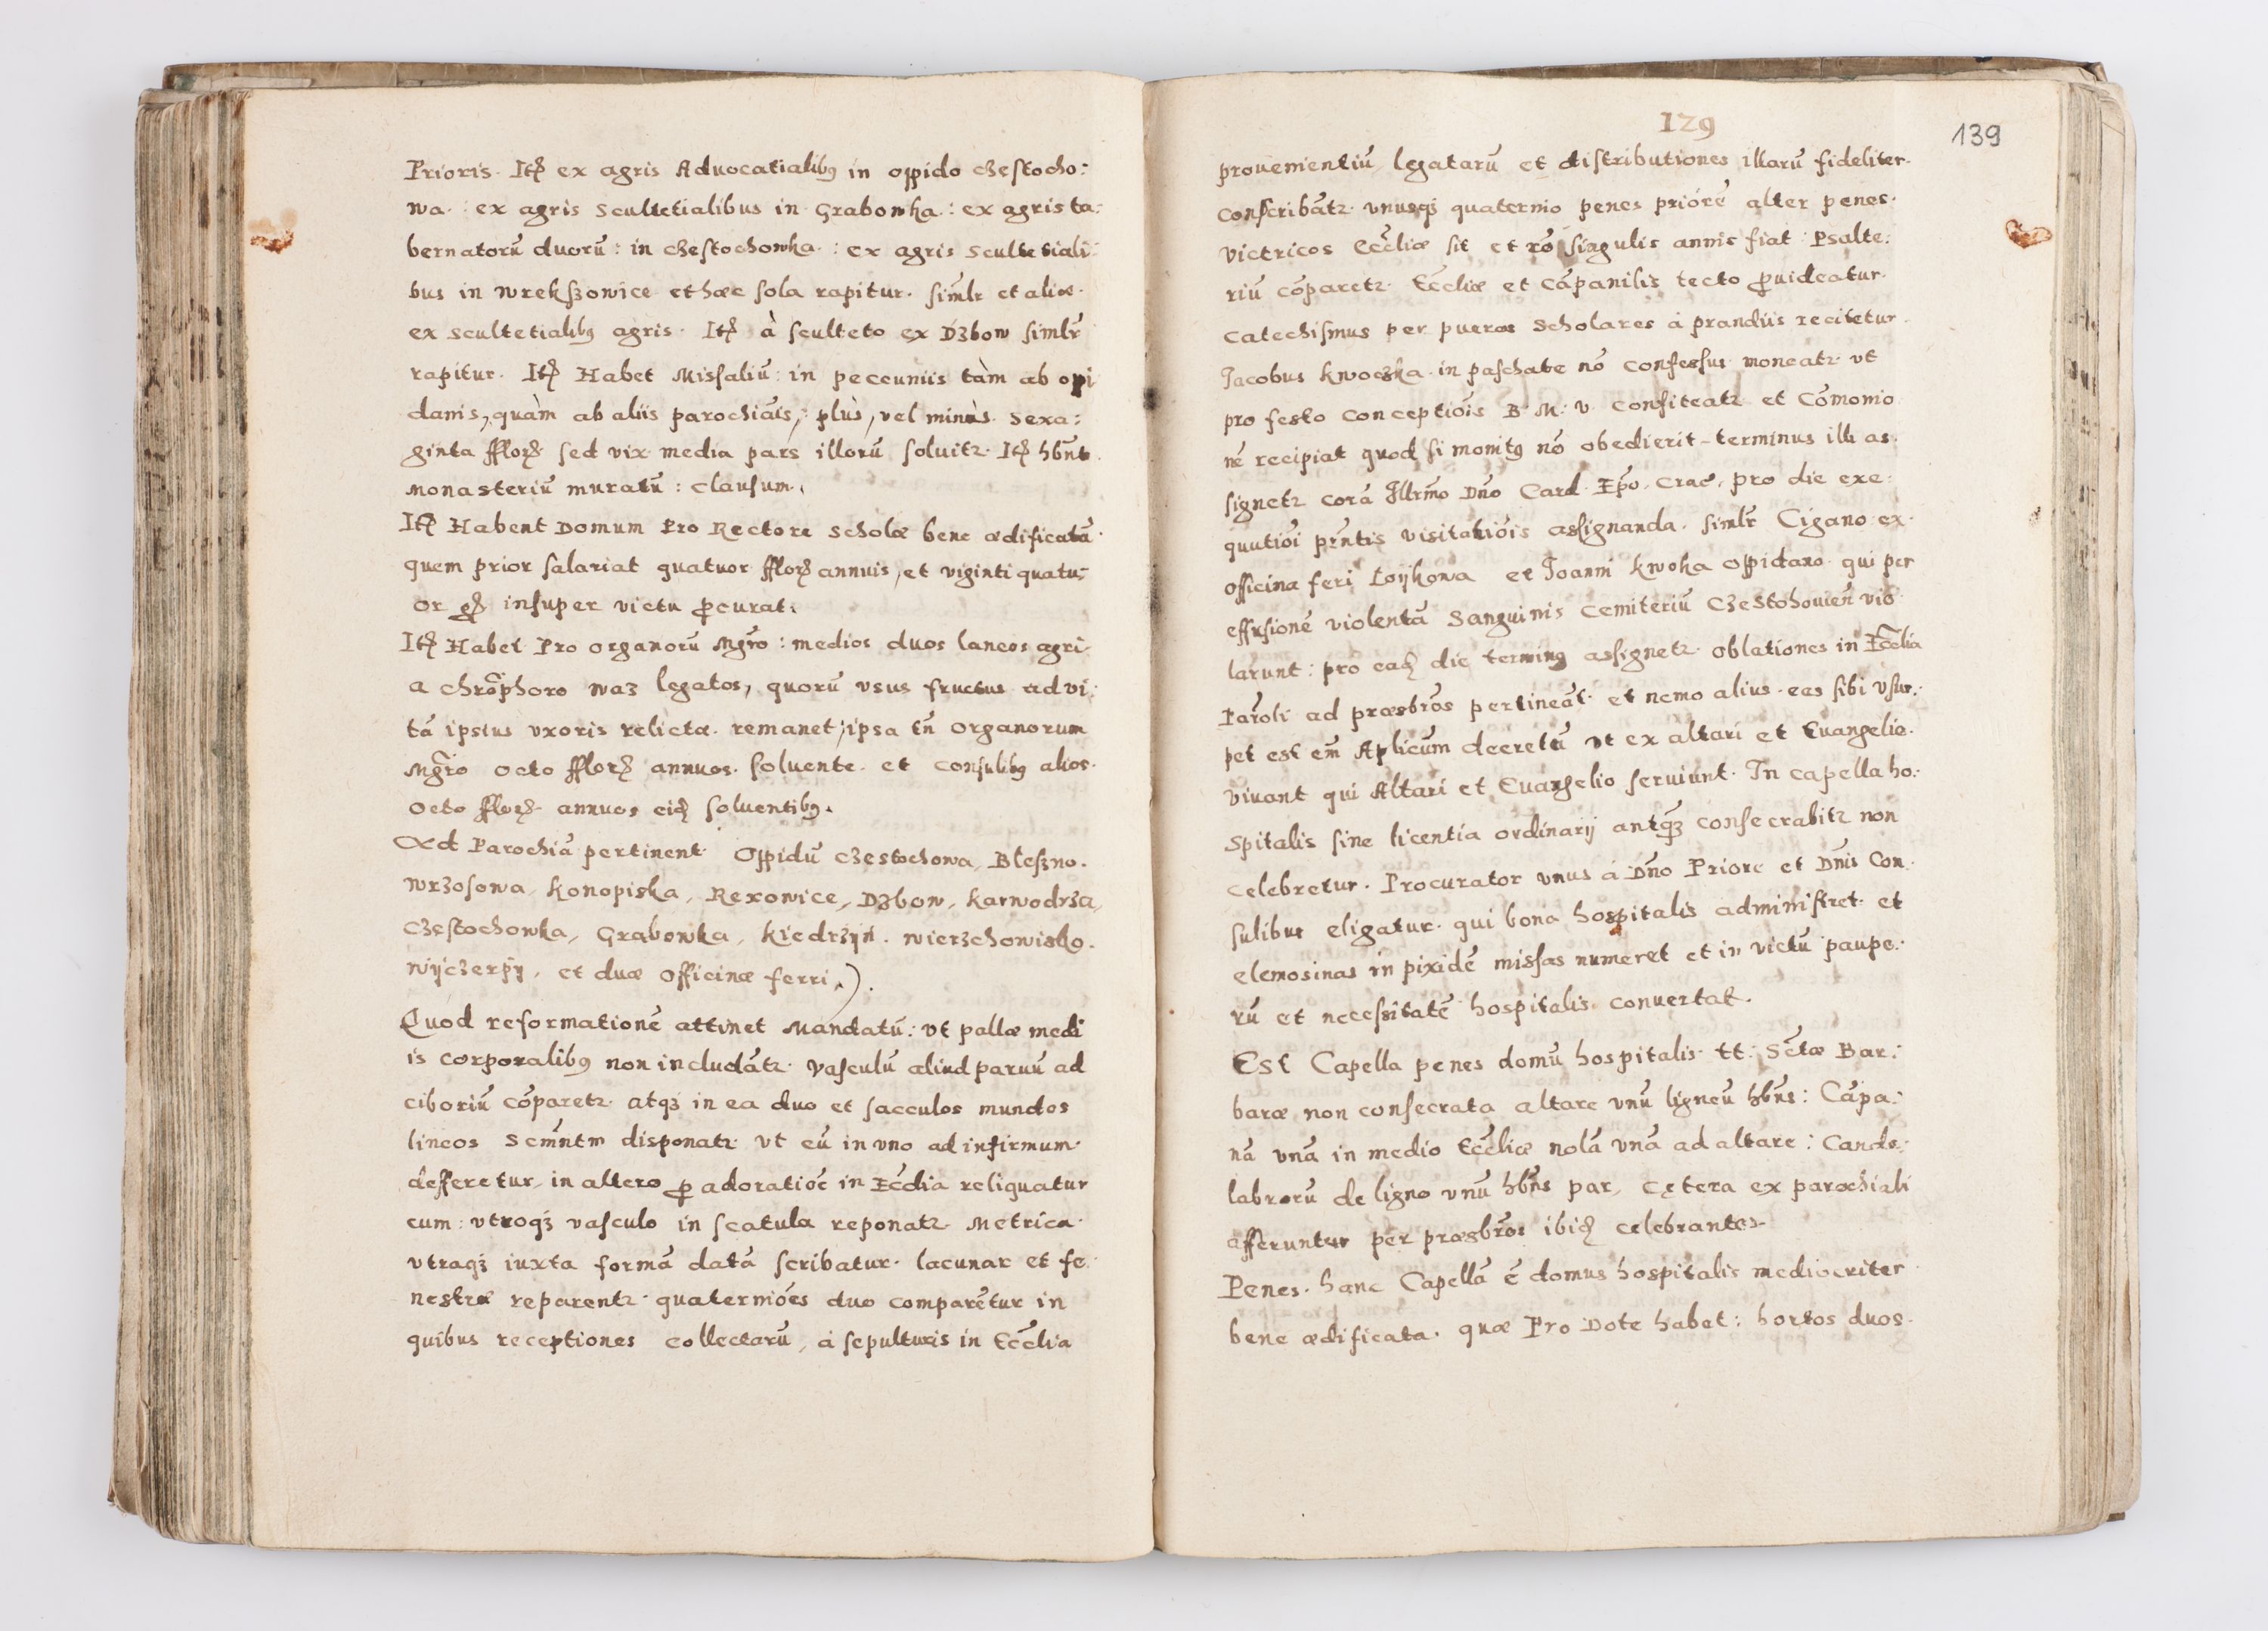 Prioris. Itẽ ex agris Advocatialibꝰ in oppido Czestocho:
wa : ex agris Scultetialibus in Grabowka : ex agris ta:
bernatorũ duorũ : in Czestochowka : ex agris Scultetiali:
bus in Wrekszowice et hæc sola rapitur. simlr et aliæ.
ex scultetialibꝰ agris. Itẽ à sculteto ex Dzbow simlr̃
rapitur. Itẽ Habet Missaliũ : in peccuniis tàm ab opi
danis, quàm ab aliis parochiãis, : plùs, vel minùs. Sexa:
ginta fflorẽ. sed vix media pars illorũ soluitz. Itẽ hñt
Monasteriũ muratũ : clausum.
Itẽ Habent Domum Pro Rectore Scholæ bene ædificatã.
quem prior salariat quatuor fflorẽ annuis, et viginti quatu:
or gẽ insuper victu ꝓcurat.
Itẽ Habet Pro organorũ Mgr̃o : medios duos laneos agri
a Chrõphoro Waz legatos, quorũ usus fructus ad vi:
tã ipsius uxoris relictæ. remanet, ipsa tñ Organorum
Mgr̃o octo fflorẽ annuos. soluente. et consulibꝰ alios.
octo fflorẽ annuos eidẽ soluentibꝰ.
Ad Parochiã pertinent Oppidũ Czestochowa, Bleszno.
Wrzosowa, Konopiska, Rexowice, Dzbow, Karwodrza,
Czestochowka, Grabowka, Kiedrzyn. Wierzchowisko.
Wijczerpy, et duæ officinæ ferri.
Quod reformationẽ attinet Mandatũ : ut pallæ medi
is corporalibꝰ non includãtz. Vasculũ aliud paruũ ad
ciboriũ cõparetz. atqz in ea duo et sacculos mundos
lineos Scmñtm disponatz ut cũ in uno ad infirmum.
defferetur, in altero ꝓ adoratiõe in Ecc̃lia reliquatur
cum : utroqz vasculo in scatula reponatz. Metrica.
utraqz iuxta formã datã scribatur. lacunar et fe.
nestræ reparentz. quaterniões duo comparẽtur in
quibus receptiones collectarũ, à sepulturis in Ecc̃lia
129
139
prouenientiũ, legatarũ et distributiones illarũ fideliter.
conscribãtz. unusqz quaternio penes priorẽ alter penes.
victricos Ecc̃liæ sit et rõ singulis annis fiat Psalte:
riũ cõparetz. Ecc̃liæ et cãpanilis tecto ꝓuideatur.
Catechismus per pueros Scholares à prandiis recitetur.
Jacobus Kwoczka. in paschate nõ confessus moneatz ut
pro festo conceptiõis B M : v. confiteatz et Cõmonio
nẽ recipiat quod si monitꝰ nõ obedierit terminus illi as.
signetz corã Illr̃mo Dño Card. Ep̃o. Crac. pro die exe:
qutiõi pr̃ntis visitatiõis assignanda. simlr̃ Cigano ex.
officina feri Loijkowa et Joanni Kwoka oppidano qui per
effusionẽ violentã Sanguinis Cemiteriũ Czestohouieñ vio
larunt : pro eadẽ die terminꝰ assignetz. oblationes in Ecc̃lia
Parõli ad præsbr̃os pertineãt. et nemo alius eas sibi usur:
pet est em̃ Aplicũm decretũ ut ex altari et Euangelio.
viuant qui Altari et Euangelio seruiunt. In capella ho:
spitalis sine licentia ordinarij antqz consecrabitz non
celebretur. Procurator unus à Dño Priore et Dñis Con.
sulibus eligatur. qui bona hospitalis administret et
elemosinas in pixidẽ missas numeret et in victũ paupe:
rũ et necessitatẽ hospitalis conuertat.
Est Capella penes domũ hospitalis tt: Sc̃tæ Bar:
baræ non consecrata altare unũ ligneũ hñs : Cãpa:
nã unã in medio Ecc̃liæ nolã unã ad altare : Cande:
labrorũ de ligno unũ hñs par, cętera ex parochiali
afferuntur per præsbr̃os ibidẽ celebrantes.
Penes. hanc Capellã ẽ domus hospitalis mediocriter
bene ædificata. quæ Pro Dote habet : hortos duos.